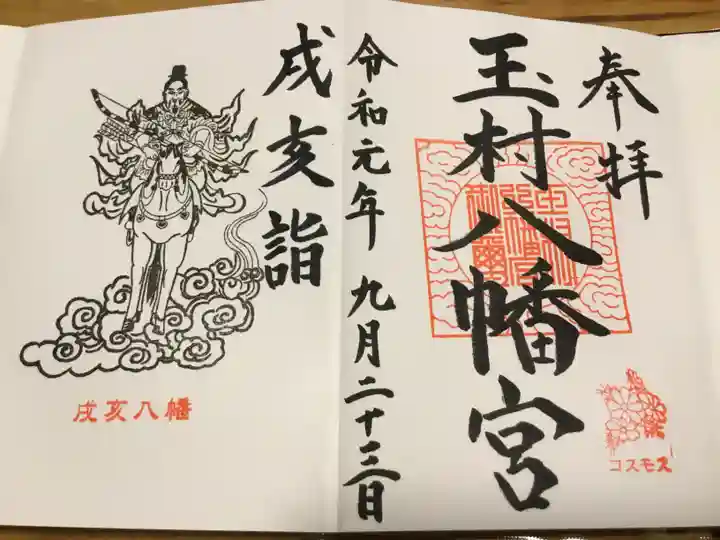 奉拝
玉村八幡宮
コスモス
令和元年九月二十三日
戌亥詣
戌亥八幡